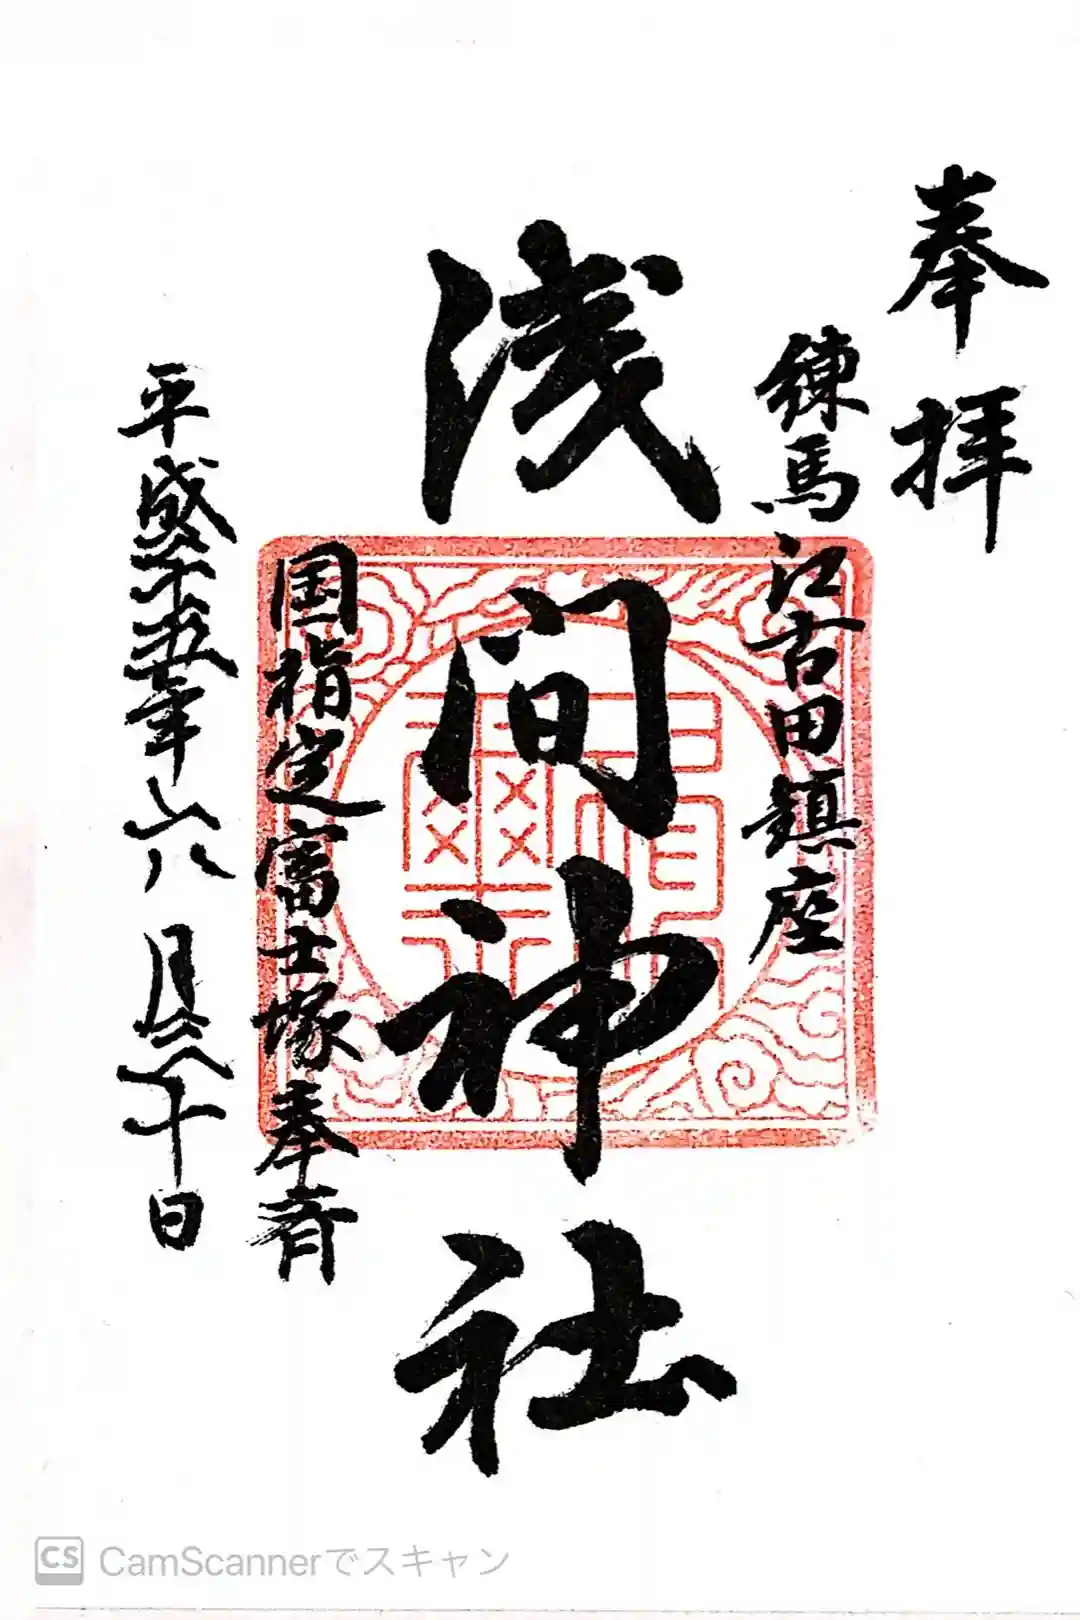 奉拝
練馬江古田鎮座
浅間神社
国指定富士塚奉斎
平成二十五年六月三十日
CS CamScannerでスキャン